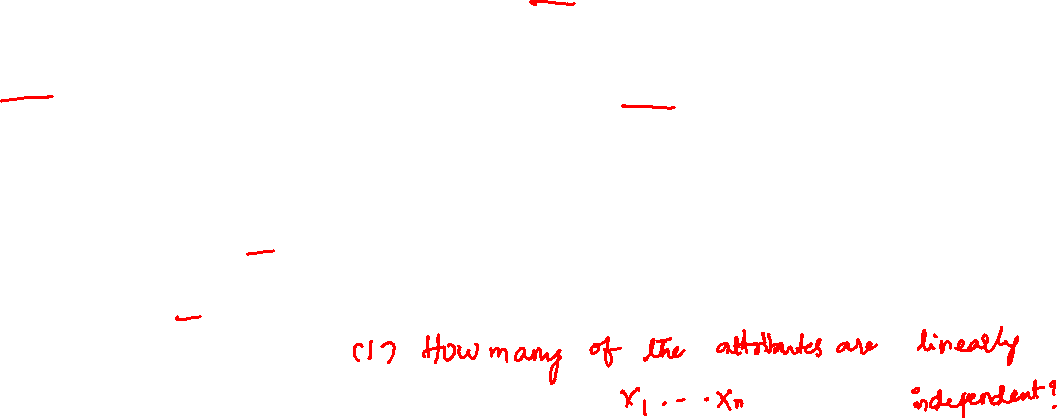 (1) How many of the attributes are linearly
x₁ . - . xₙ independent?